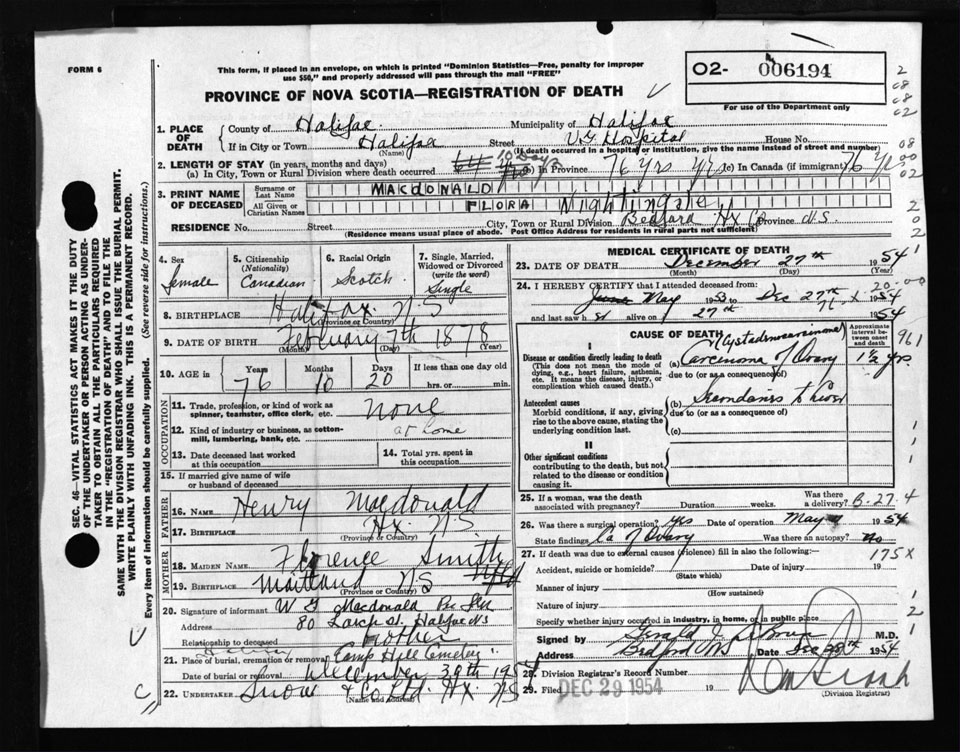 FORM 6
This form, if placed in an envelope, on which is printed "Dominion Statistics—Free, penalty for improper
use $50," and properly addressed will pass through the mail "FREE"
PROVINCE OF NOVA SCOTIA—REGISTRATION OF DEATH
O2- 006194
For use of the Department only
1. PLACE OF DEATH
County of Halifax Municipality of Halifax
If in City or Town Halifax Street V.G Hospital House No.
(Name) (If death occurred in a hospital or institution, give the name instead of street and number)
2. LENGTH OF STAY (in years, months and days)
(a) In City, Town or Rural Division where death occurred 10 Days (b) In Province 76 yrs (c) In Canada (if immigrant) 76 yrs
3. PRINT NAME OF DECEASED
Surname or Last Name MACDONALD
All Given or Christian Names FLORA Nightingale
RESIDENCE No. Street City, Town or Rural Division Bedford Hx Co Province N.S.
(Residence means usual place of abode. Post Office Address for residents in rural parts not sufficient)
4. Sex
female
5. Citizenship
(Nationality)
Canadian
6. Racial Origin
Scotch
7. Single, Married, Widowed or Divorced
(write the word)
Single
8. BIRTHPLACE Halifax N.S
(Province or Country)
9. DATE OF BIRTH February 7th 1878
(Month) (Day) (Year)
10. AGE in Years 76 Months 10 Days 20 If less than one day old
hrs. or min.
OCCUPATION
11. Trade, profession, or kind of work as
spinner, teamster, office clerk, etc. none
12. Kind of industry or business, as cotton-
mill, lumbering, bank, etc. at home
13. Date deceased last worked
at this occupation
14. Total yrs. spent in
this occupation
15. If married give name of wife
or husband of deceased
FATHER
16. Name Henry Macdonald
17. Birthplace Hx. N.S
(Province or Country)
MOTHER
18. MAIDEN NAME Florence Smith
19. BIRTHPLACE Maitland NS
(Province or Country)
20. Signature of informant W G Macdonald
Address 80 Larch St. Halifax N.S
Relationship to deceased Brother
21. Place of burial, cremation or removal Camp Hill Cemetery
Date of burial or removal December 29th 195
22. UNDERTAKER Snow & Co Ltd. Hx. N.S
(Name and address)
SEC. 46—VITAL STATISTICS ACT MAKES IT THE DUTY
OF THE UNDERTAKER OR PERSON ACTING AS UNDER-
TAKER TO OBTAIN ALL THE PARTICULARS REQUIRED
IN THE "REGISTRATION OF DEATH" AND TO FILE THE
SAME WITH THE DIVISION REGISTRAR WHO SHALL ISSUE THE BURIAL PERMIT.
WRITE PLAINLY WITH UNFADING INK. THIS IS A PERMANENT RECORD.
Every item of information should be carefully supplied. (See reverse side for instructions.)
MEDICAL CERTIFICATE OF DEATH
23. DATE OF DEATH December 27th 1954
(Month) (Day) (Year)
24. I HEREBY CERTIFY that I attended deceased from:
May 1953 to Dec 27th 1954
and last saw h er alive on 27th 1954
CAUSE OF DEATH
Approximate interval between onset and death
I
Disease or condition directly leading to death
(This does not mean the mode of dying, e.g., heart failure, asthenia, etc. It means the disease, injury, or complication which caused death.)
(a) Cystadenocarcinoma
Carcinoma of Ovary 1½ yrs
due to (or as a consequence of)
Antecedent causes
Morbid conditions, if any, giving rise to the above cause, stating the underlying condition last.
(b) Secondaries to Liver
due to (or as a consequence of)
(c)
II
Other significant conditions
contributing to the death, but not related to the disease or condition causing it.
25. If a woman, was the death
associated with pregnancy? Duration weeks. Was there a delivery?
B-27.4
26. Was there a surgical operation? yes Date of operation May 1954
State findings Ca of Ovary Was there an autopsy? No
27. If death was due to external causes (violence) fill in also the following:—
175X
Accident, suicide or homicide? Date of injury 19
(State which)
Manner of injury
(How sustained)
Nature of injury
Specify whether injury occurred in industry, in home, or in public place
Signed by M.D.
Address Bedford NS Date Dec 28th 1954
28. Division Registrar's Record Number
29. Filed DEC 29 1954 19
(Division Registrar)